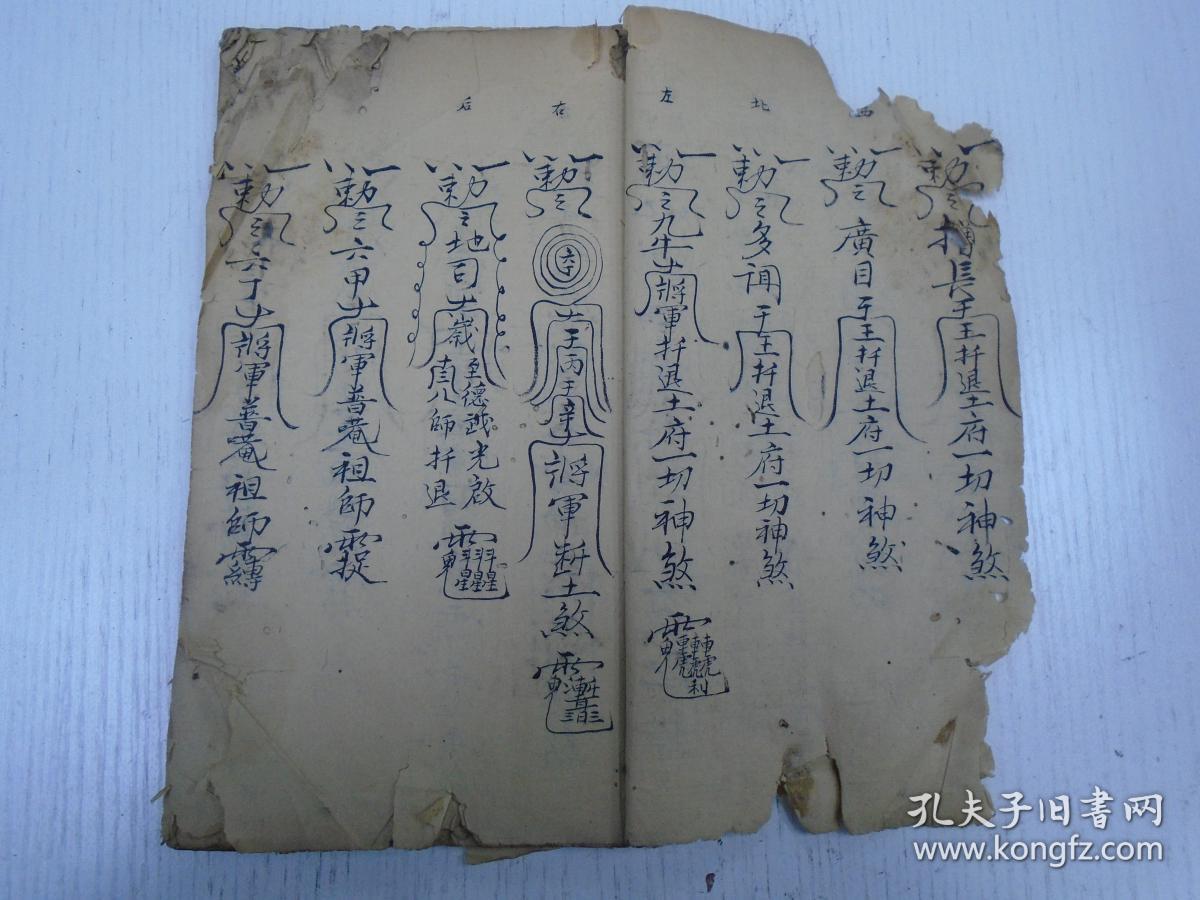 西
北
左
右
后
勅令增長天王扦退土府一切神煞
勅令廣目天王扦退土府一切神煞
勅令多聞天王扦退土府一切神煞
勅令九牛大將軍扦退土府一切神煞
勅令六丁大將軍斬土煞
勅令地司太歲至德越光啟真人師扦退
勅令六甲大將軍普菴祖師
勅令六丁大將軍普菴祖師
孔夫子旧书网
www.kongfz.com